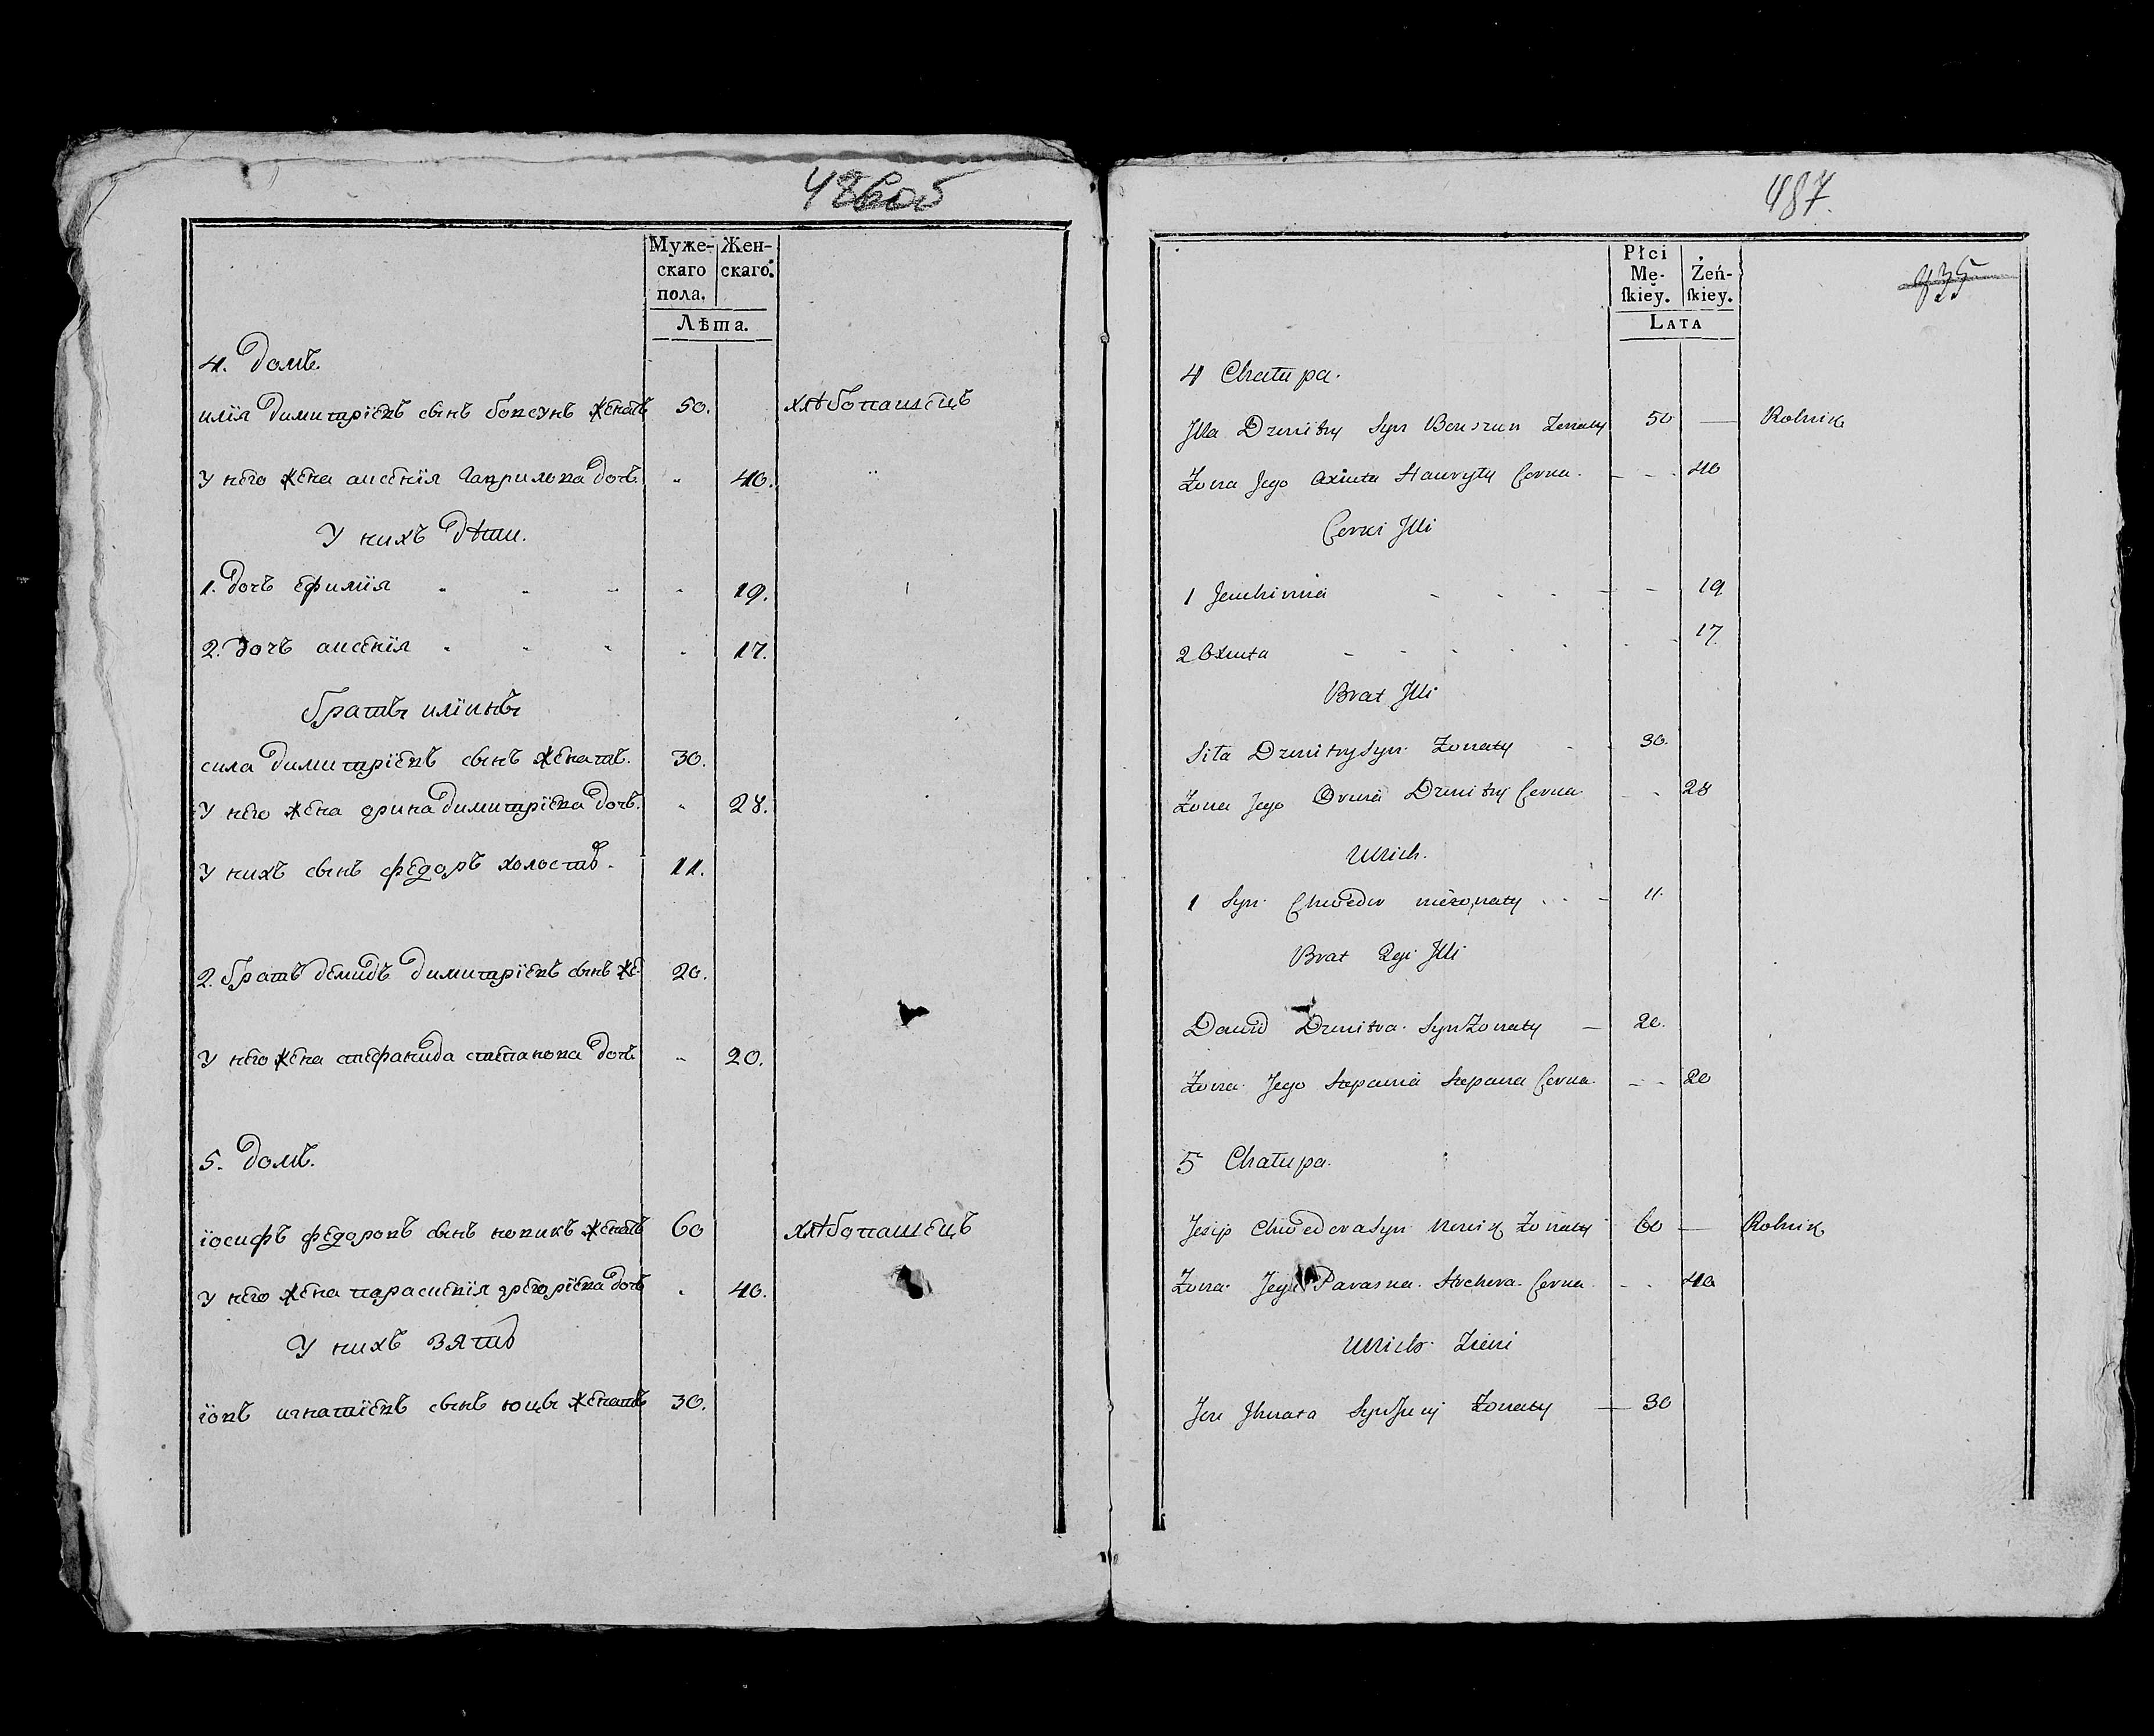 486об
Муже-
скаго
пола.
Жен-
скаго.
Лѣта.
4. домъ.
илїя димитрїевъ сынъ бовсунъ женатъ 50. хлѣбопашецъ
У него жена аксенїя гаврилова дочь " 40. "
У нихъ дѣти.
1. дочъ ефимїя " " " " 19.
2. дочъ аксенїя " " " " 17.
братъ илїинъ
сила димитрїевъ сынъ женатъ. 30.
У него жена арина димитрїева дочь. " 28.
У нихъ сынъ федоръ холостъ. 11.
2. братъ демидъ димитрїевъ сынъ же 20.
У него жена стефанида степанова дочь " 20.
5. домъ.
їосифъ федоровъ сынъ новикъ женатъ 60 хлѣбопашецъ
У него жена параскевїя григорїева дочь " 40.
У нихъ зять
їовъ игнатїевъ сынъ ющъ женатъ 30.
487.
835
Płci
Mę-
skiey.
Żeń-
skiey.
LATA
4 Chałupa.
Jlla Dzmitry Syn Bouszun Żonaty 50 — Rolnik
Żona Jego Axiuta Hauryły Corka - - 40
Corki Jlli
1 Jeuchimia - - - - - 19
2 Axiuta - - - - - - 17
Brat Jlli
Siła Dzmitry Syn Żonaty - 30.
Żona Jego Oryna Dzmitry Corka - - 28
U Nich.
1 Syn Chwedor nieżonaty - - - 11.
Brat 2gi Jlli
Dawid Dzmitra Syn Żonaty — 20.
Żona Jego Stepania Stepana Corka - - 20
5 Chałupa.
Jezip Chwedora Syn Nowik Żonaty 60 — Rolnik
Żona Jego Paraska Corka - - 40
U Nich Zięć
Jou Jhnata Syn Żonaty — 30